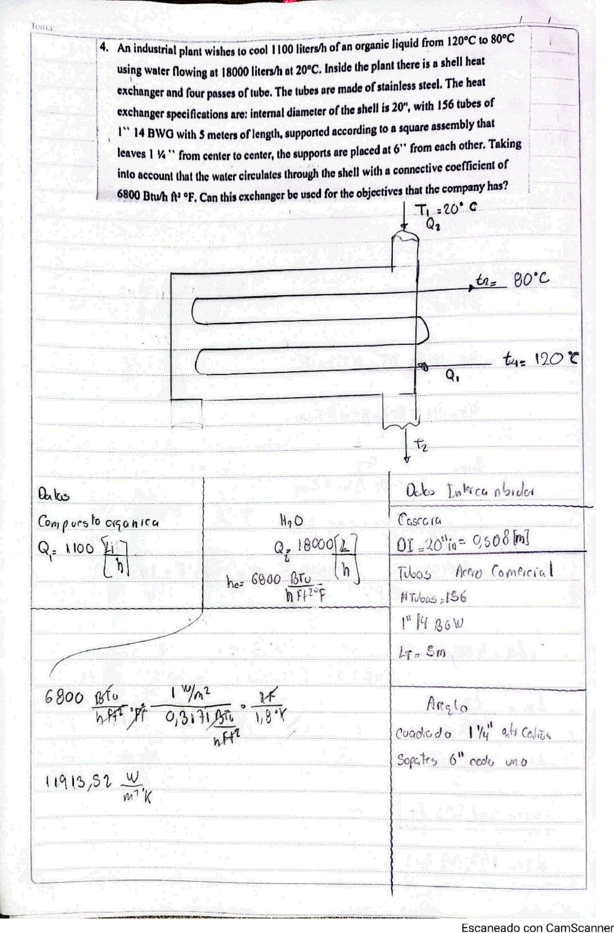 Tema:
4. An industrial plant wishes to cool 1100 liters/h of an organic liquid from 120°C to 80°C
using water flowing at 18000 liters/h at 20°C. Inside the plant there is a shell heat
exchanger and four passes of tube. The tubes are made of stainless steel. The heat
exchanger specifications are: internal diameter of the shell is 20", with 156 tubes of
1`` 14 BWG with 5 meters of length, supported according to a square assembly that
leaves 1 ¼ `` from center to center, the supports are placed at 6`` from each other. Taking
into account that the water circulates through the shell with a connective coefficient of
6800 Btu/h ft² °F. Can this exchanger be used for the objectives that the company has?
T₁ = 20° C
Q₂
t₂= 80°C
t₁= 120°C
Q₁
T₂
Datos
Compuesto organica
Q₁= 1100 [Li/h]
H₂O
Q₂= 18000 [L/h]
he= 6800 BTu/hFt²°F
Datos Intercambiador
Cascara
DI = 20" in = 0,508 [m]
Tubos Acero Comercial
#Tubos = 156
1" 14 BGW
LT = 5m
Arreglo
cuadrado 1 ¼" entre Centros
Soportes 6" cada uno
6800 BTu/hFt² °F · 1 W/m²/0,3171 BTu/hFt² · °F/1,8°K
11913,52 W/m²°K
Escaneado con CamScanner